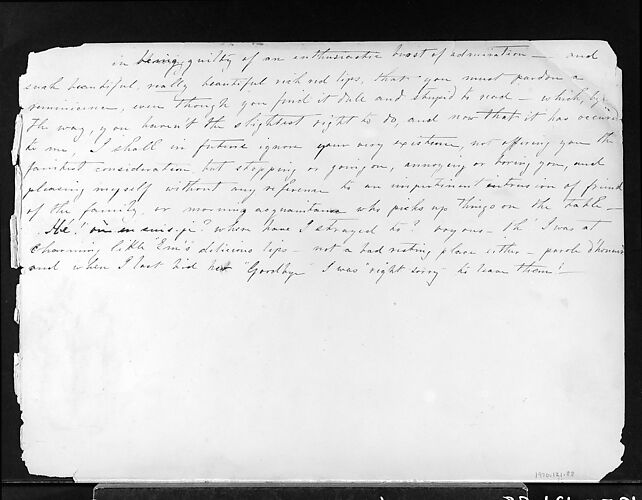 in being guilty of an enthusiastic burst of admiration — and
such beautiful, really beautiful rich red lips, that you must pardon a
reminiscence, even though you find it dull and stupid to read — which, by
the way, you haven't the slightest right to do, and now that it has occurred
to me, I shall in future ignore your very existence, not offering you the
faintest consideration, but stopping or going on, annoying or boring you, and
pleasing myself without any reference to an impertinent intrusion of friend
of the family, or morning acquaintance who picks up things on the table —
He! ou en suis-je? where have I strayed to? voyons — Ah! I was at
charming little Em's delicious lips — not a bad resting place either — parole d'honneur
and when I last bid her "Goodbye" I was "right sorry" to leave them! —
1970.121.88